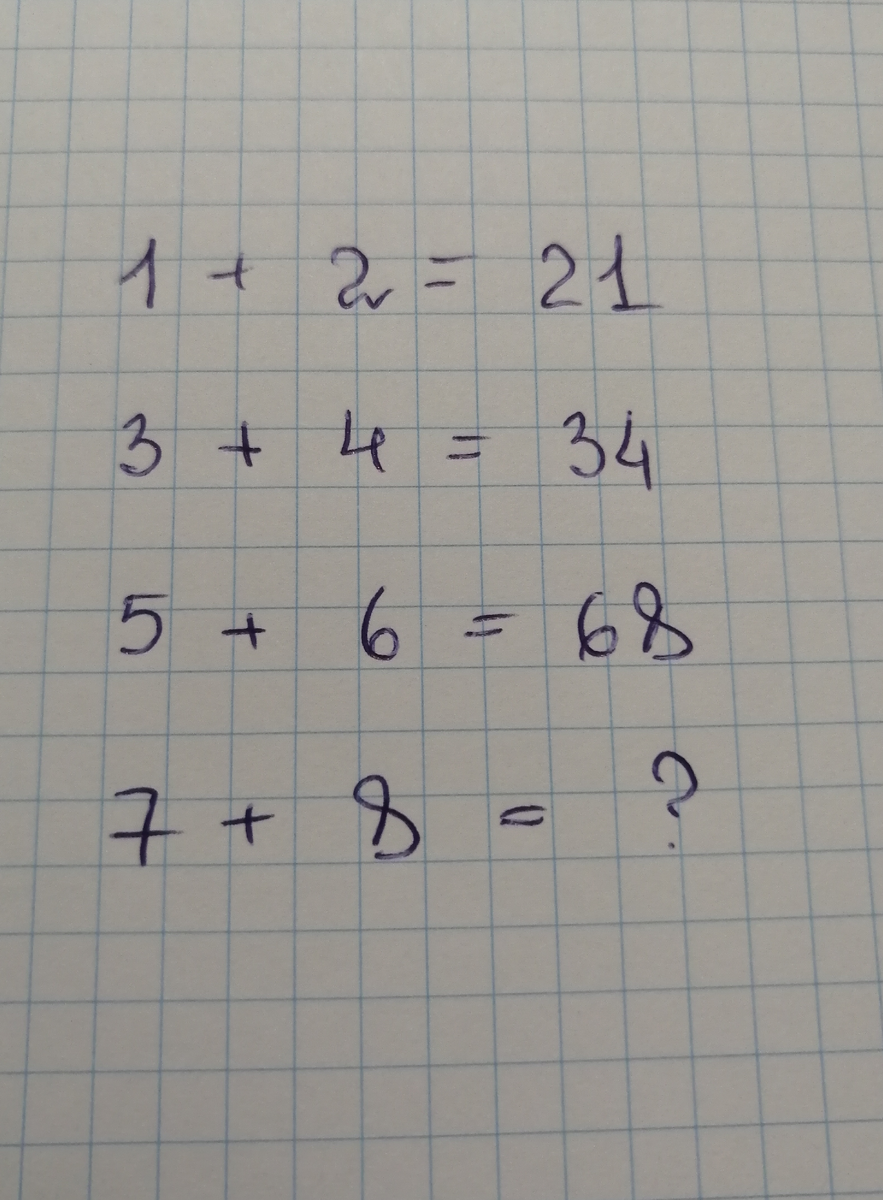 1 + 2 = 21
3 + 4 = 34
5 + 6 = 68
7 + 8 = ?